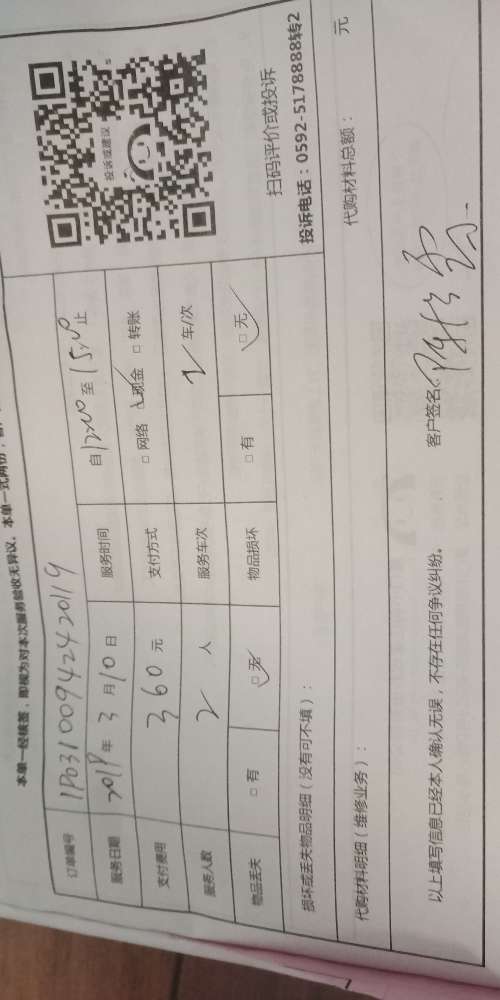 本单一经核签，即视为对本次服务验收无异议。本单一式两份，
订单编号 1P03100942420119
服务日期 2019年 3 月 10 日 服务时间 自 12:00 至 15:00 止
支付费用 360 元 支付方式 □ 网络 □ 现金 □ 转账
服务人数 2 人 服务车次 2 车/次
物品丢失 □ 有 □ 无 物品损坏 □ 有 □ 无
投诉或建议
扫码评价或投诉
投诉电话：0592-5178888转2
损坏或丢失物品明细（没有可不填）：
代购材料明细（维修业务）： 代购材料总额： 元
以上填写信息已经本人确认无误，不存在任何争议纠纷。 客户签名：